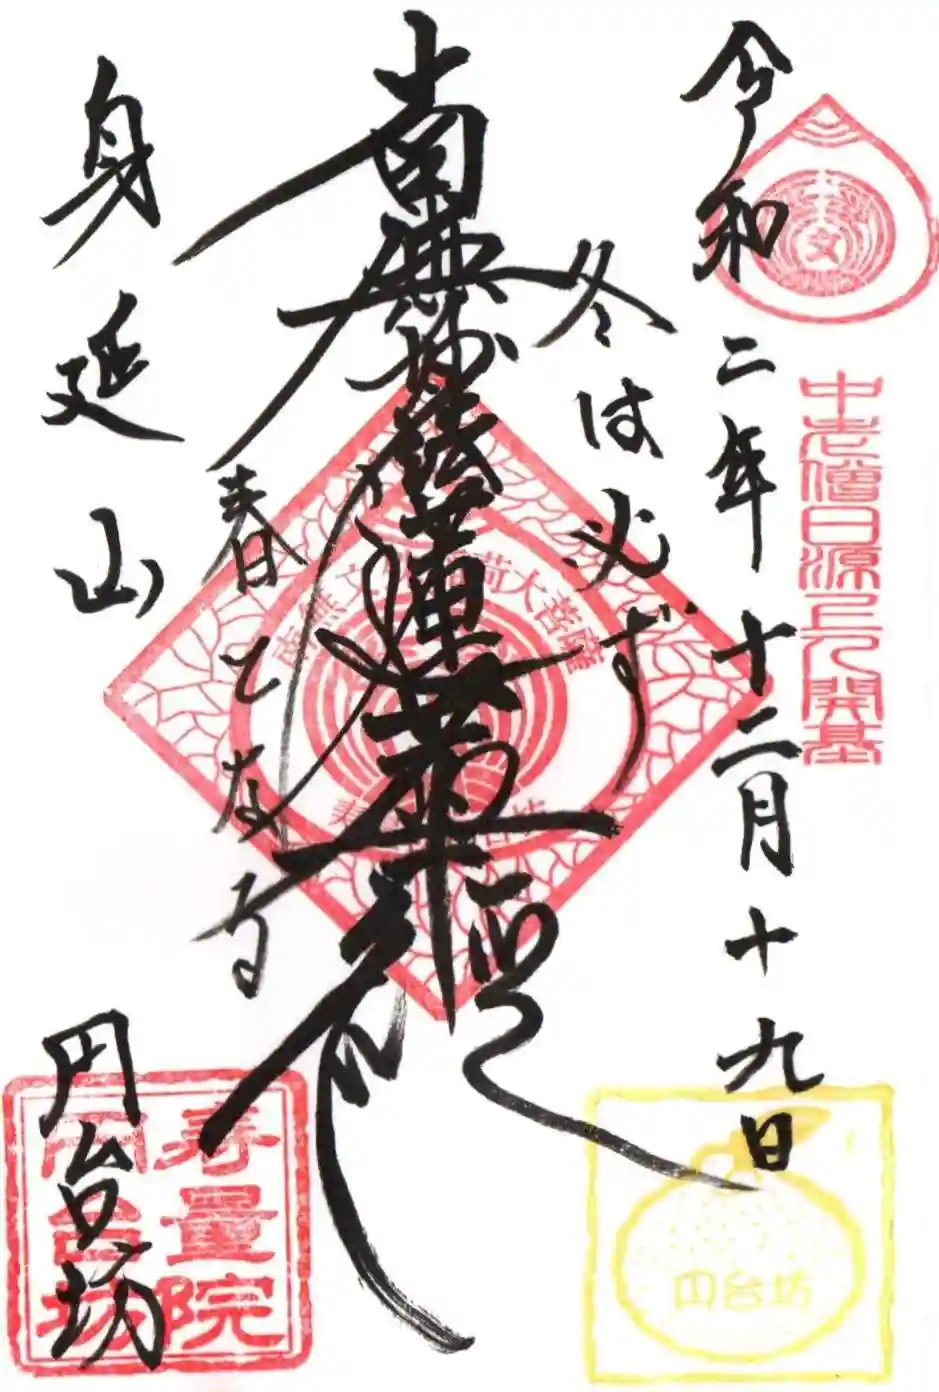 令和二年十二月十九日
中老僧日源上人開基
冬は必ず
南無妙法蓮華経
春となる
身延山
円台坊
寿量院
円台坊
円台坊